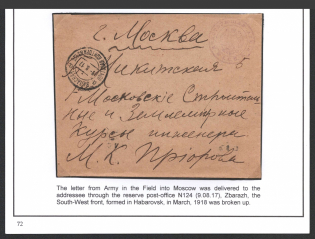 г. Москва
Никитская 5
Московскiе Строитель
ные и Землемерные
Курсы инженера
М. К. Прiорова
The letter from Army in the Field into Moscow was delivered to the
addressee through the reserve post-office N124 (9.08.17), Zbarazh, the
South-West front, formed in Habarovsk, in March, 1918 was broken up.
72